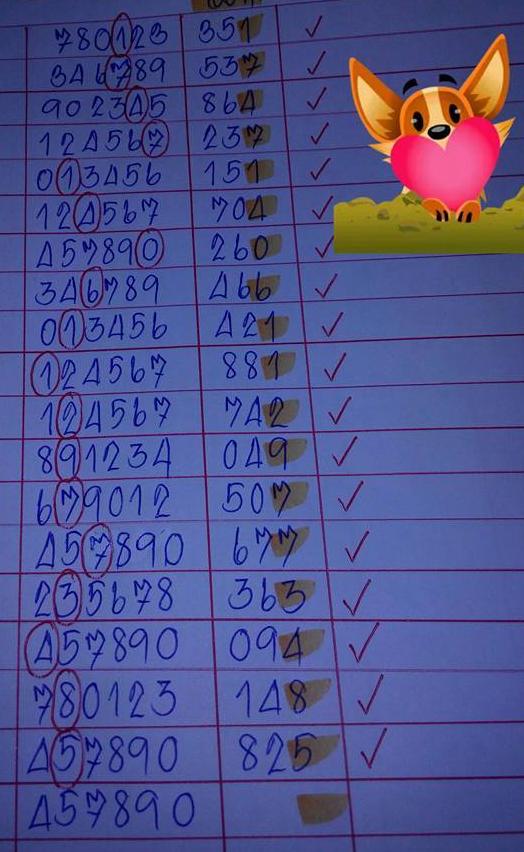 780123 351 ✓
346789 537 ✓
902345 864 ✓
124567 237 ✓
013456 151 ✓
124567 704 ✓
457890 260 ✓
346789 466 ✓
013456 421 ✓
124567 881 ✓
124567 742 ✓
891234 049 ✓
679012 507 ✓
457890 677 ✓
235678 363 ✓
457890 094 ✓
780123 148 ✓
457890 825 ✓
457890